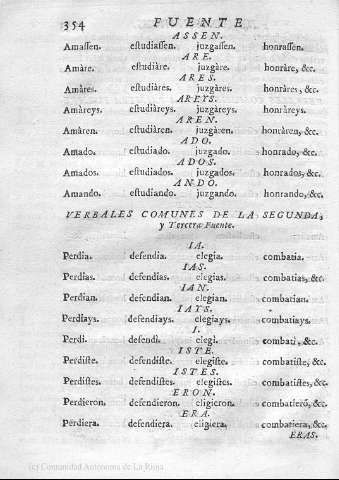 354 FUENTE
ASSEN.
Amaſſen. eſtudiaſſen. juzgaſſen. honraſſen.
ARE.
Amàre. eſtudiàre. juzgàre. honràre, &c.
ARES.
Amàres. eſtudiàres. juzgàres. honràres, &c.
AREYS.
Amàreys. eſtudiàreys. juzgàreys. honràreys.
AREN.
Amàren. eſtudiàren. juzgàren. honràren, &c.
ADO.
Amado. eſtudiado. juzgado. honrado, &c.
ADOS.
Amados. eſtudiados. juzgados. honrados, &c.
ANDO.
Amando. eſtudiando. juzgando. honrando, &c.
VERBALES COMUNES DE LA SEGUNDA,
y Tercera Fuente.
IA.
Perdia. defendia. elegia. combatia.
IAS.
Perdias. defendias. elegias. combatias, &c.
IAN.
Perdian. defendian. elegian. combatian.
IAYS.
Perdiays. defendiays. elegiays. combatiays.
I.
Perdi. defendi. elegi. combati, &c.
ISTE.
Perdiſte. defendiſte. elegiſte. combatiſte, &c.
ISTES.
Perdiſtes. defendiſtes. elegiſtes. combatiſtes, &c.
ERON.
Perdieron. defendieron. eligieron. combatierõ, &c.
ERA.
Perdiera. defendiera. eligiera. combatiera, &c.
ERAS.
(c) Comunidad Autónoma de La Rioja